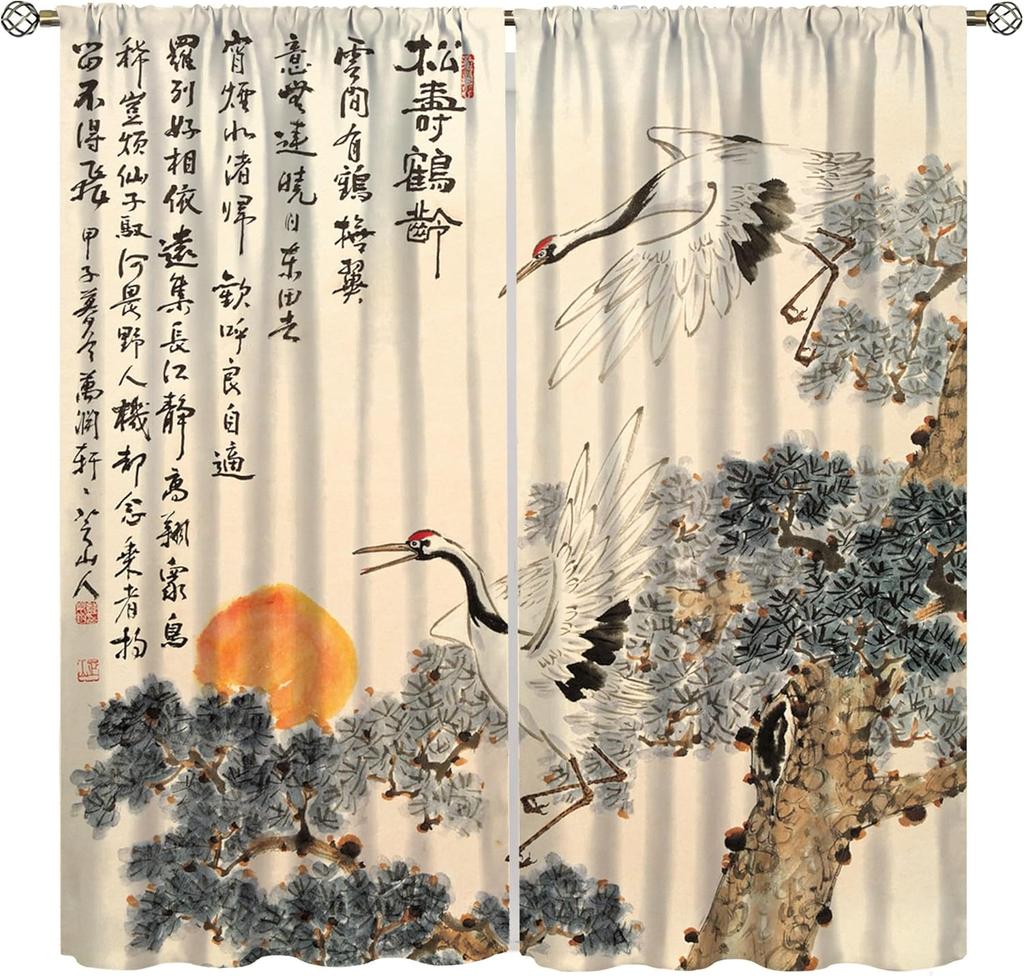 松壽鶴齡
雲間有鶴 翼
意無違曉日東田去
宵煙水渚歸 歡呼良自適
羅列好相依遠集長江靜高翔眾鳥
稀豈煩仙子馭何畏野人機却念乘者拘
留不得飛 甲子 萬潤軒 山人